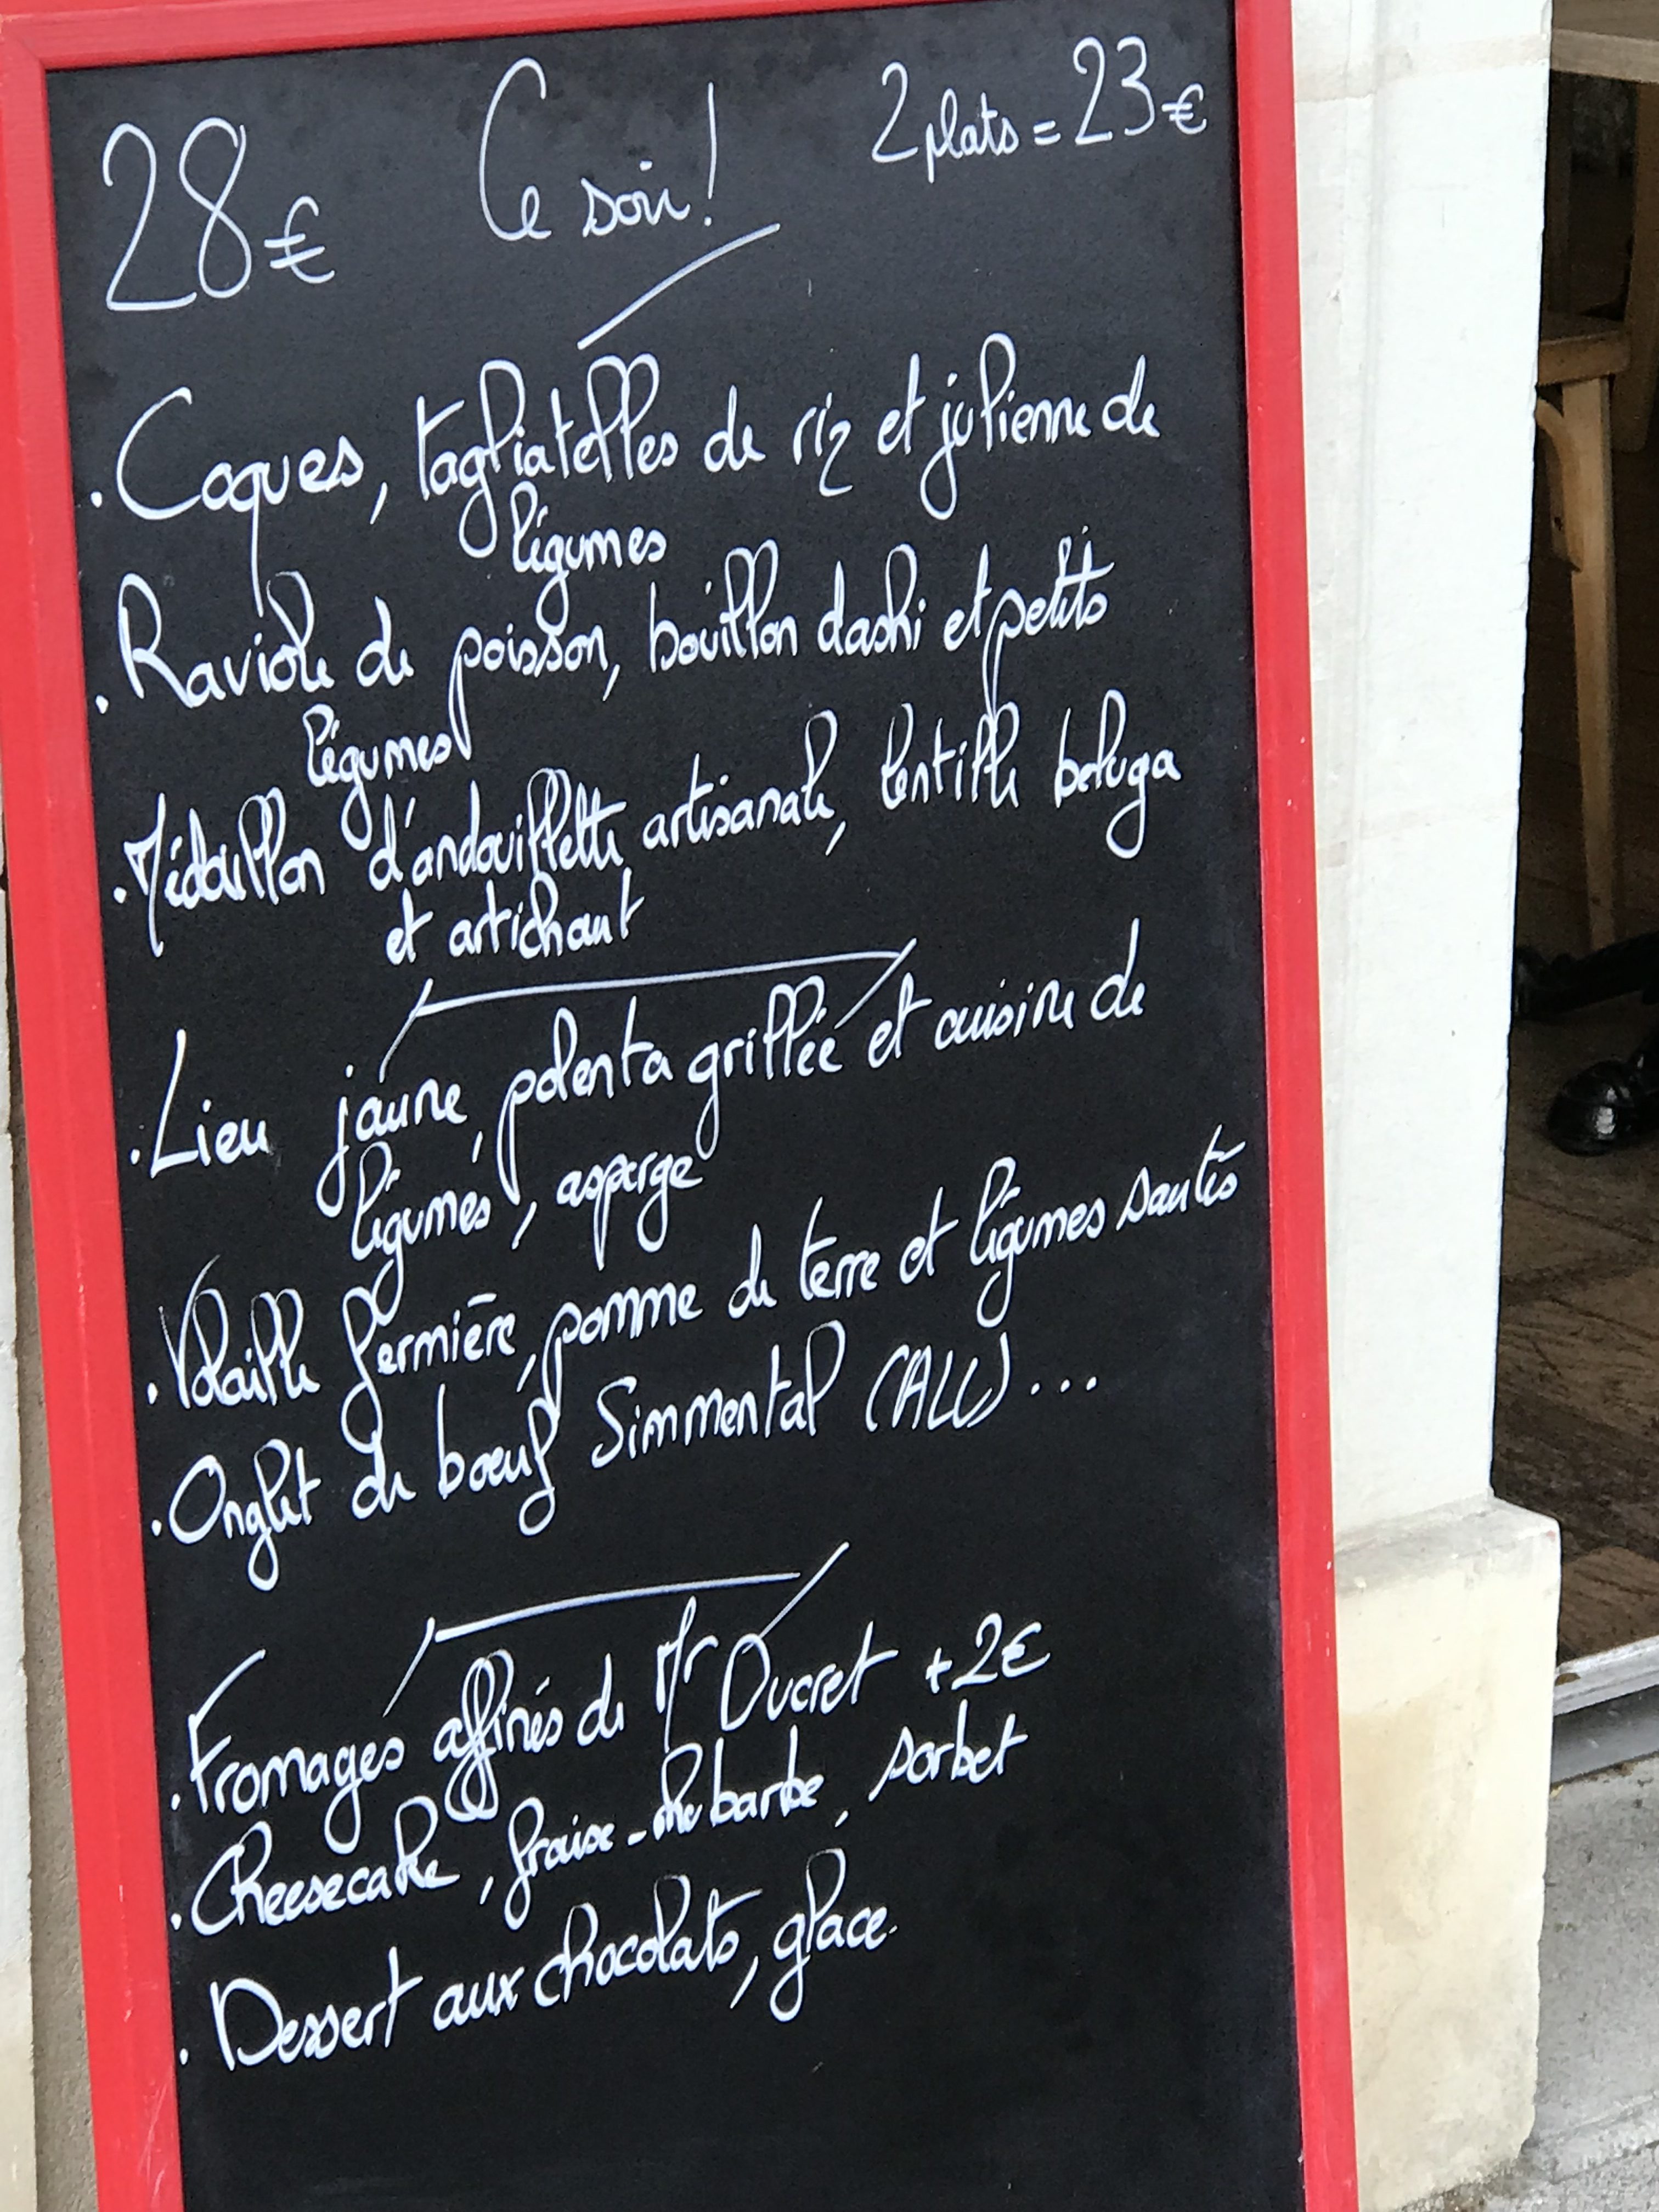 28€ Ce soir! 2 plats = 23€
. Coques, tagliatelles de riz et julienne de
légumes
. Raviole de poisson, bouillon dashi et petits
légumes
. Médaillon d'andouillette artisanale, lentille beluga
et artichaut
. Lieu jaune, polenta grillée et cuisine de
légumes, asperge
. Volaille fermière, pomme de terre et légumes sautés
. Onglet de bœuf Simmental (ALL) ...
. Fromages affinés de Mr Ducret +2€
. Cheesecake, fraise-rhubarbe, sorbet
. Dessert aux chocolats, glace.